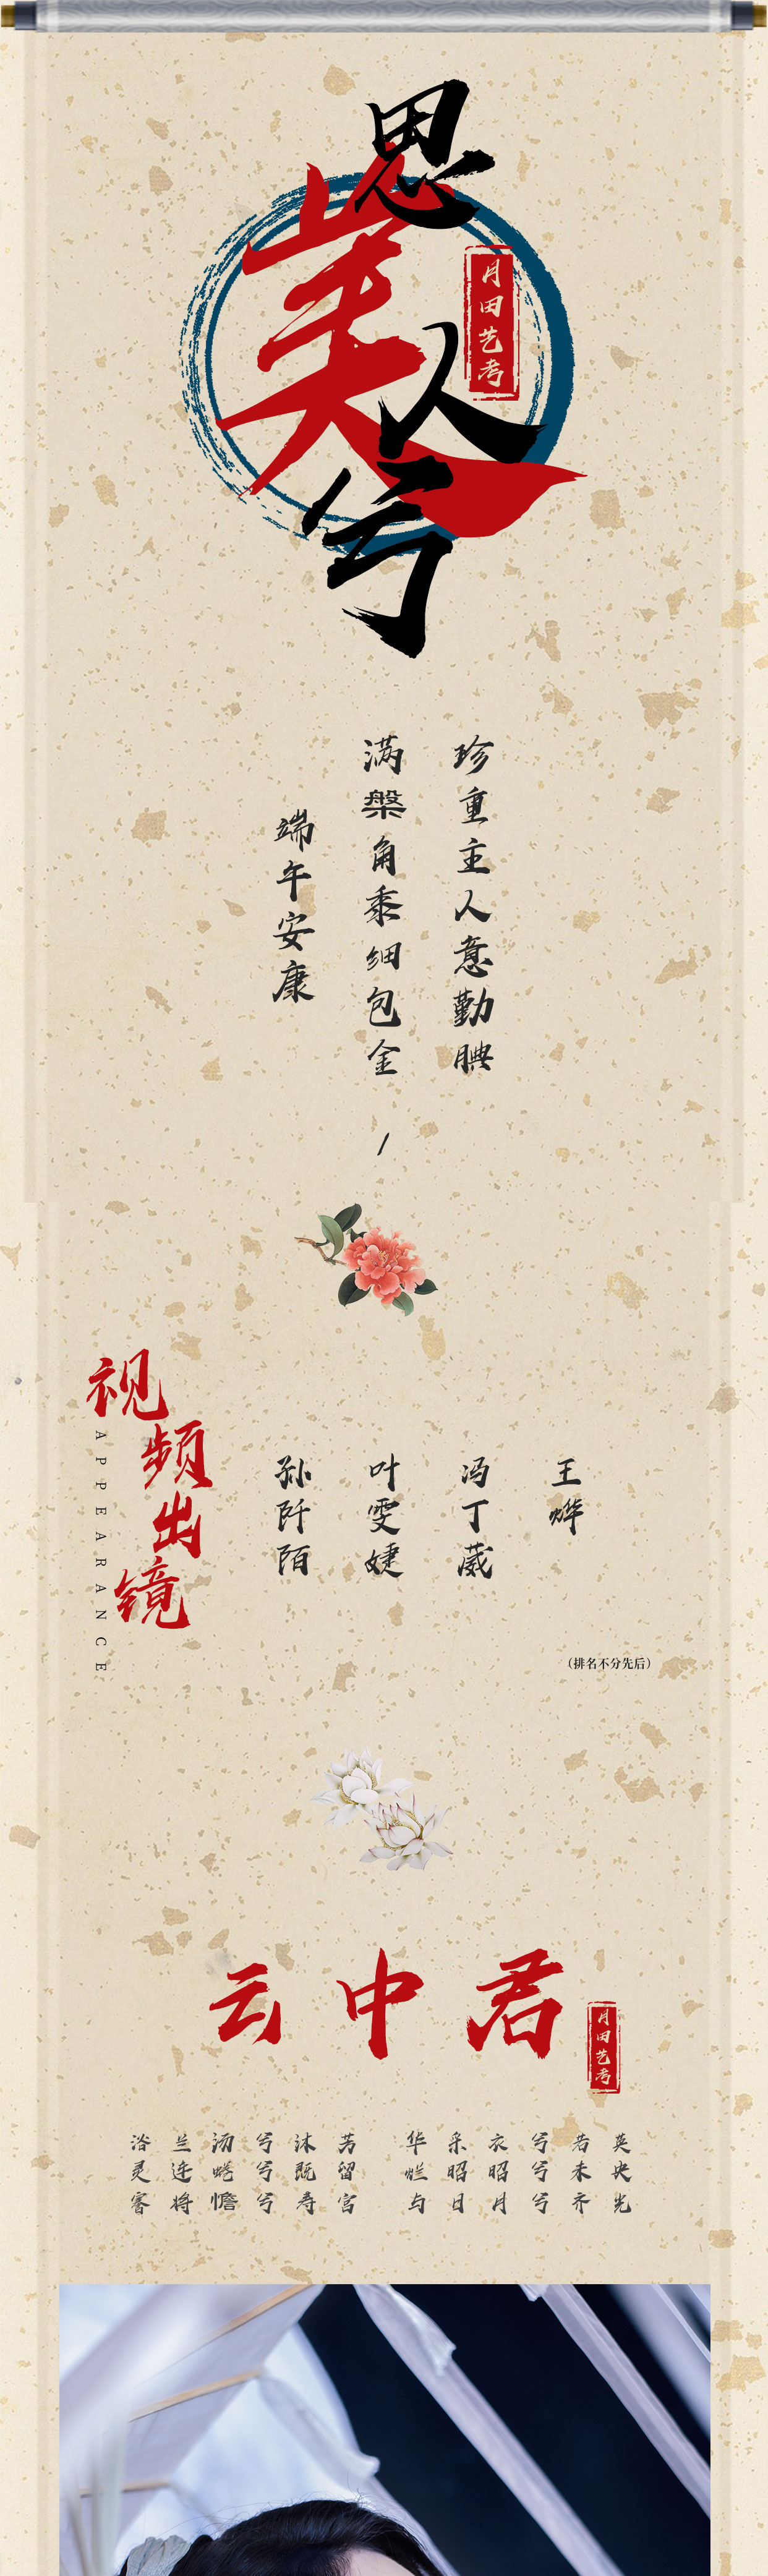 思美人兮
月田艺考
珍重主人意勤腆
满槃角黍细包金 /
端午安康
视频出镜
APPEARANCE
王烨
冯丁葳
叶雯婕
孙阡陌
（排名不分先后）
云中君
月田艺考
浴兰汤兮沐芳 华采衣兮若英
灵连蜷兮既留 烂昭昭兮未央
謇将憺兮寿宫 与日月兮齐光